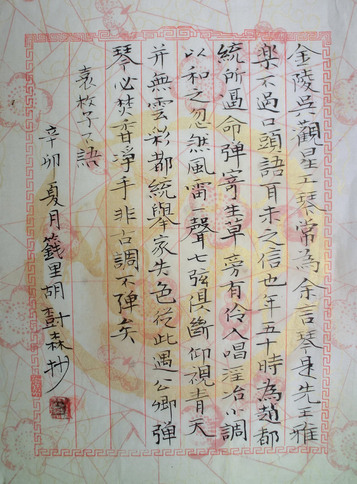 金陵吳觀星工琴常為余言琴是先王雅
樂不過口頭語耳未之信也年五十時為趙都
統所逼命彈寄生草旁有伶人唱淫冶小調
以和之忽然風雷一聲七弦俱斷仰視青天
并無雲彩都統舉家失色從此遇公卿彈
琴必焚香淨手非古調不彈矣
袁枚子不語
辛卯夏月籛里胡森抄